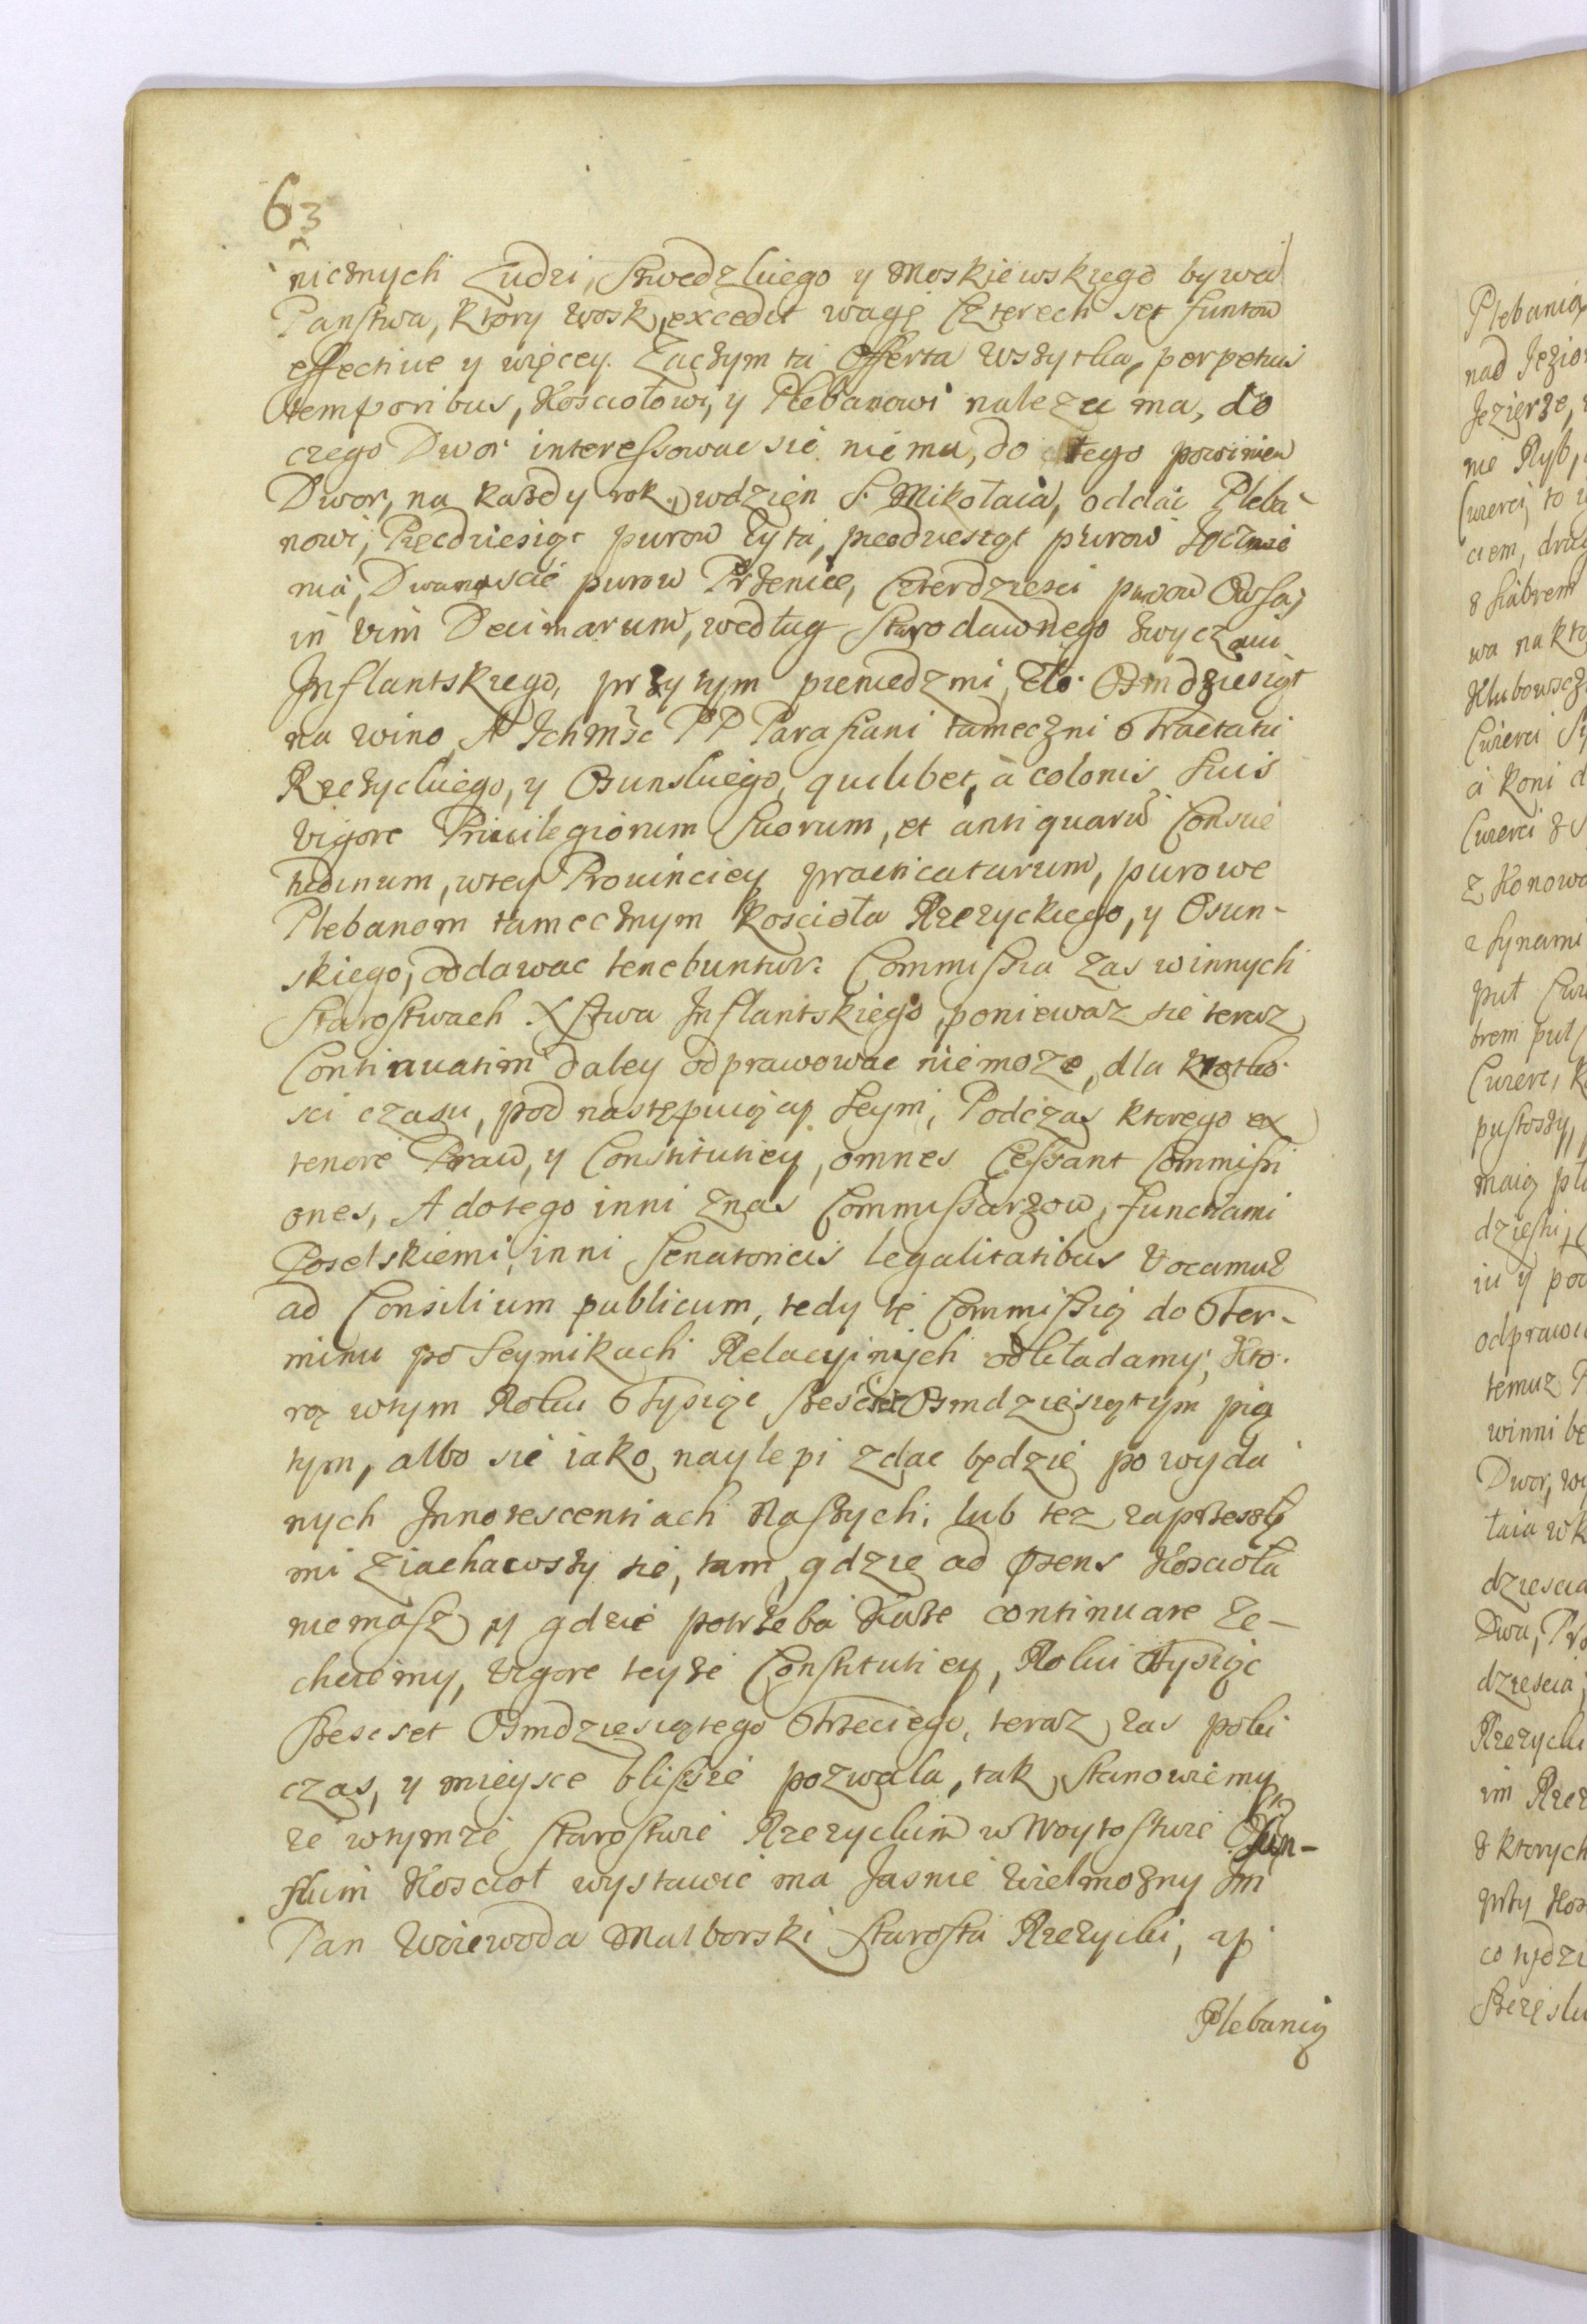 63
nicznych Ludzi, Szwedzkiego y Moskiewskiego bywa
Panstwa, ktory wosk, excedit wagę Czterech set funtow
effective y więcey. Zaczym ta Offerta wszytka, perpetuis
temporibus, Kosciołowi, y Plebanowi nalezec ma, do
czego Dwor interessowac sie nie ma, do tego powinien
Dwor, na kazdy rok, wdzien S. Mikołaia, oddac Pleba-
nowi, Piędziesiąt purow Zyta, piedziesiąt purow Jęczmie
nia, Dwanascie purow Pszenice, Czterdziesci purow Owsa,
in vim Decimarum, według Starodawnego zwyczaiu
Inflantskiego, przytym pieniedzmi, Zło. Osmdziesiąt
na wino, A Ichmśc PP Parafiani tameczni Tractatu
Rzezyckiego, y Osunskiego, quilibet, à colonis suis
vigore Priuilegiorum suorum, et antiquarũ Consue
tudinum, wtey Prouinciey practicatarum, purowe
Plebanom tamecznym Kosciola Rzezyckiego, y Osun-
skiego, oddawac tenebuntur. Commissia zas winnych
Starostwach X. stwa Inflantskiego, poniewaz sie teraz
Continuatim daley odprawowac niemoze, dla krotko-
sci czasu, pod następuiący Seym, Podczas ktorego ex
tenore Praw, y Constitutiey, omnes Cessant Commissi
ones, A dotego inni znas Commissarzow, functiami
Poselskiemi, inni Senatoriis legalitatibus Vocamur
ad Consilium publicum, tedy tę Commissią do Ter-
minu po Seymikach Relacyinych odkładamy, Kto-
rą wtym Roku Tysiąc szescset Osmdziesiątym pią
tym, albo sie iako naylepi zdac będzie po wyda
nych Innotescentiach Naszych, lub tez zaprzeszły
mi Ziachawszy sie, tam, gdzie ad praesens Kosciola
niemasz, y gdzie potrzeba każe continuare ze-
chcemy, vigore teyze Constitutiey, Roku Tysiąc
szescset Osmdziesiątego Trzeciego, teraz zas poki
czas, y mieysce blisze pozwala, tak stanowiemy
ze wtymze Starostwie Rzezyckim w Woytostwie Osun-
skim Kosciol wystawic ma Jasnie Wielmozny Jm
Pan Woiewoda Malborski Starosta Rzezycki, y
Plebanią